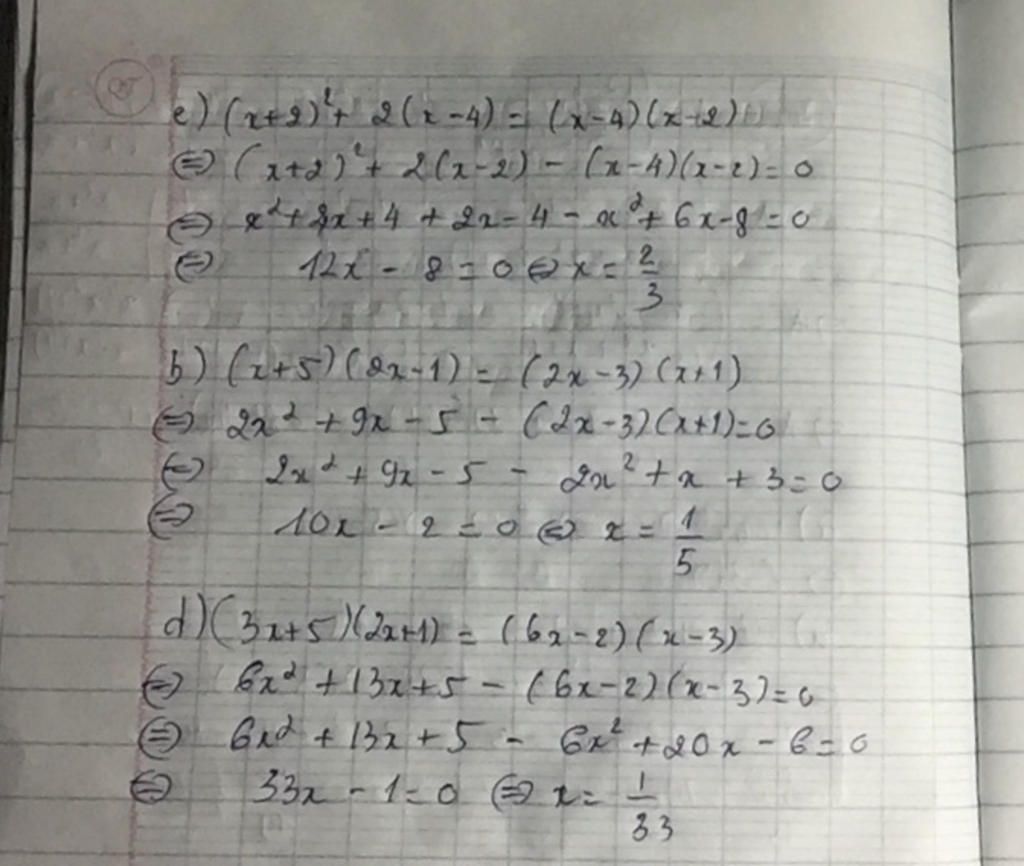 e) (x+2)² + 2(x-4) = (x-4)(x-2)
⇔ (x+2)² + 2(x-2) - (x-4)(x-2) = 0
⇔ x² + 4x + 4 + 2x - 4 - x² + 6x - 8 = 0
⇔ 12x - 8 = 0 ⇔ x = 2/3
b) (x+5)(2x-1) = (2x-3)(x+1)
⇔ 2x² + 9x - 5 - (2x-3)(x+1) = 0
⇔ 2x² + 9x - 5 - 2x² + x + 3 = 0
⇔ 10x - 2 = 0 ⇔ x = 1/5
d) (3x+5)(2x+1) = (6x-2)(x-3)
⇔ 6x² + 13x + 5 - (6x-2)(x-3) = 0
⇔ 6x² + 13x + 5 - 6x² + 20x - 6 = 0
⇔ 33x - 1 = 0 ⇔ x = 1/33